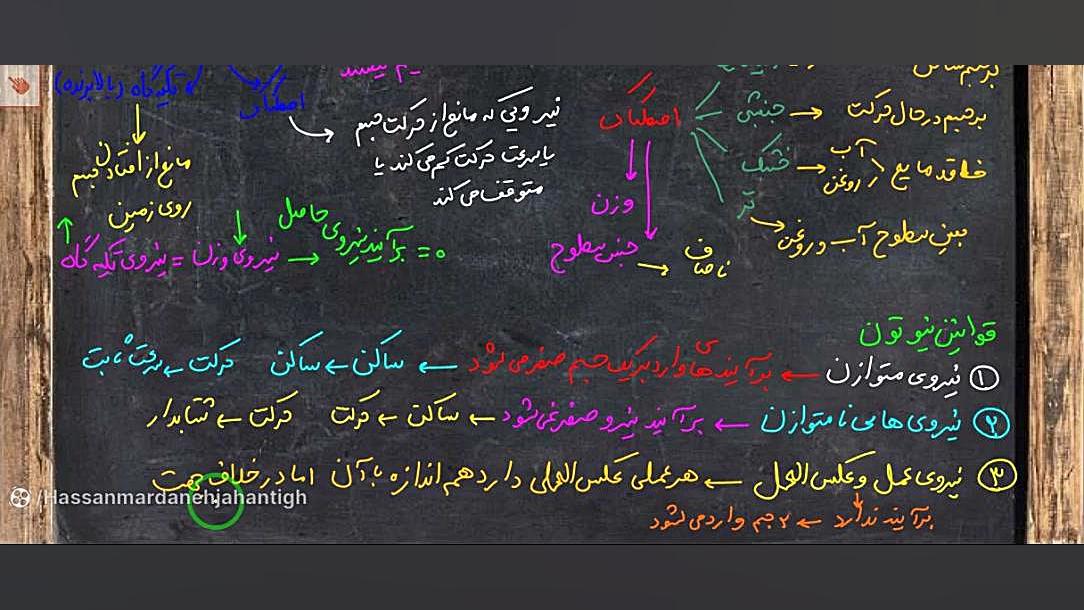 تکیه گاه (بالابرنده)
اصطکاک
نیرویی که مانع از حرکت جسم
یا سرعت حرکت کم می کند یا
متوقف می کند
مانع از افتادن جسم
روی زمین
اصطکاک
وزن
جنس سطوح → ناصاف
جنبشی → برجسم در حال حرکت
خشک → فاقد مایع آب روغن
تر → بین سطوح آب و روغن
نیروی تکیه گاه = نیروی وزن → برآیند نیروی حاصل = 0
قوانین نیوتون
① نیروی متوازن ← برآیند های وارد بر یک جسم صفر می شود ← ساکن ← ساکن حرکت ← سرعت ثابت
② نیروی هایی نامتوازن ← برآیند نیرو صفر نمی شود ← ساکن ← حرکت حرکت ← شتابدار
③ نیروی عمل و عکس العمل ← هر عملی عکس العملی دارد هم اندازه با آن اما در خلاف جهت
برآیند ندارد ← ۲ جسم وارد می شود
/Hassanmardanehjahantigh